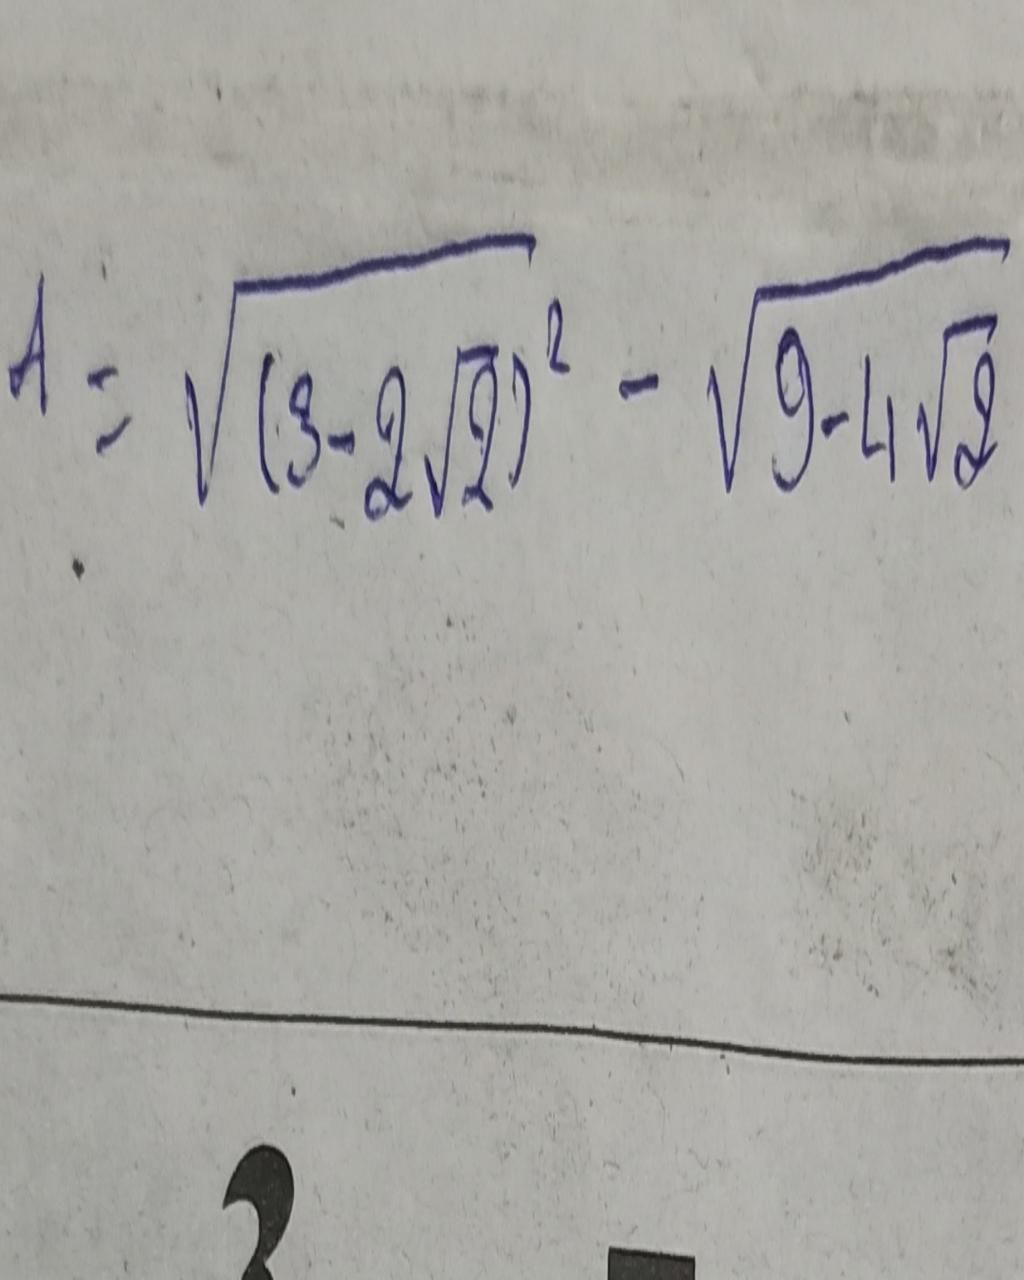 A = √(3-2√2)² - √9-4√2